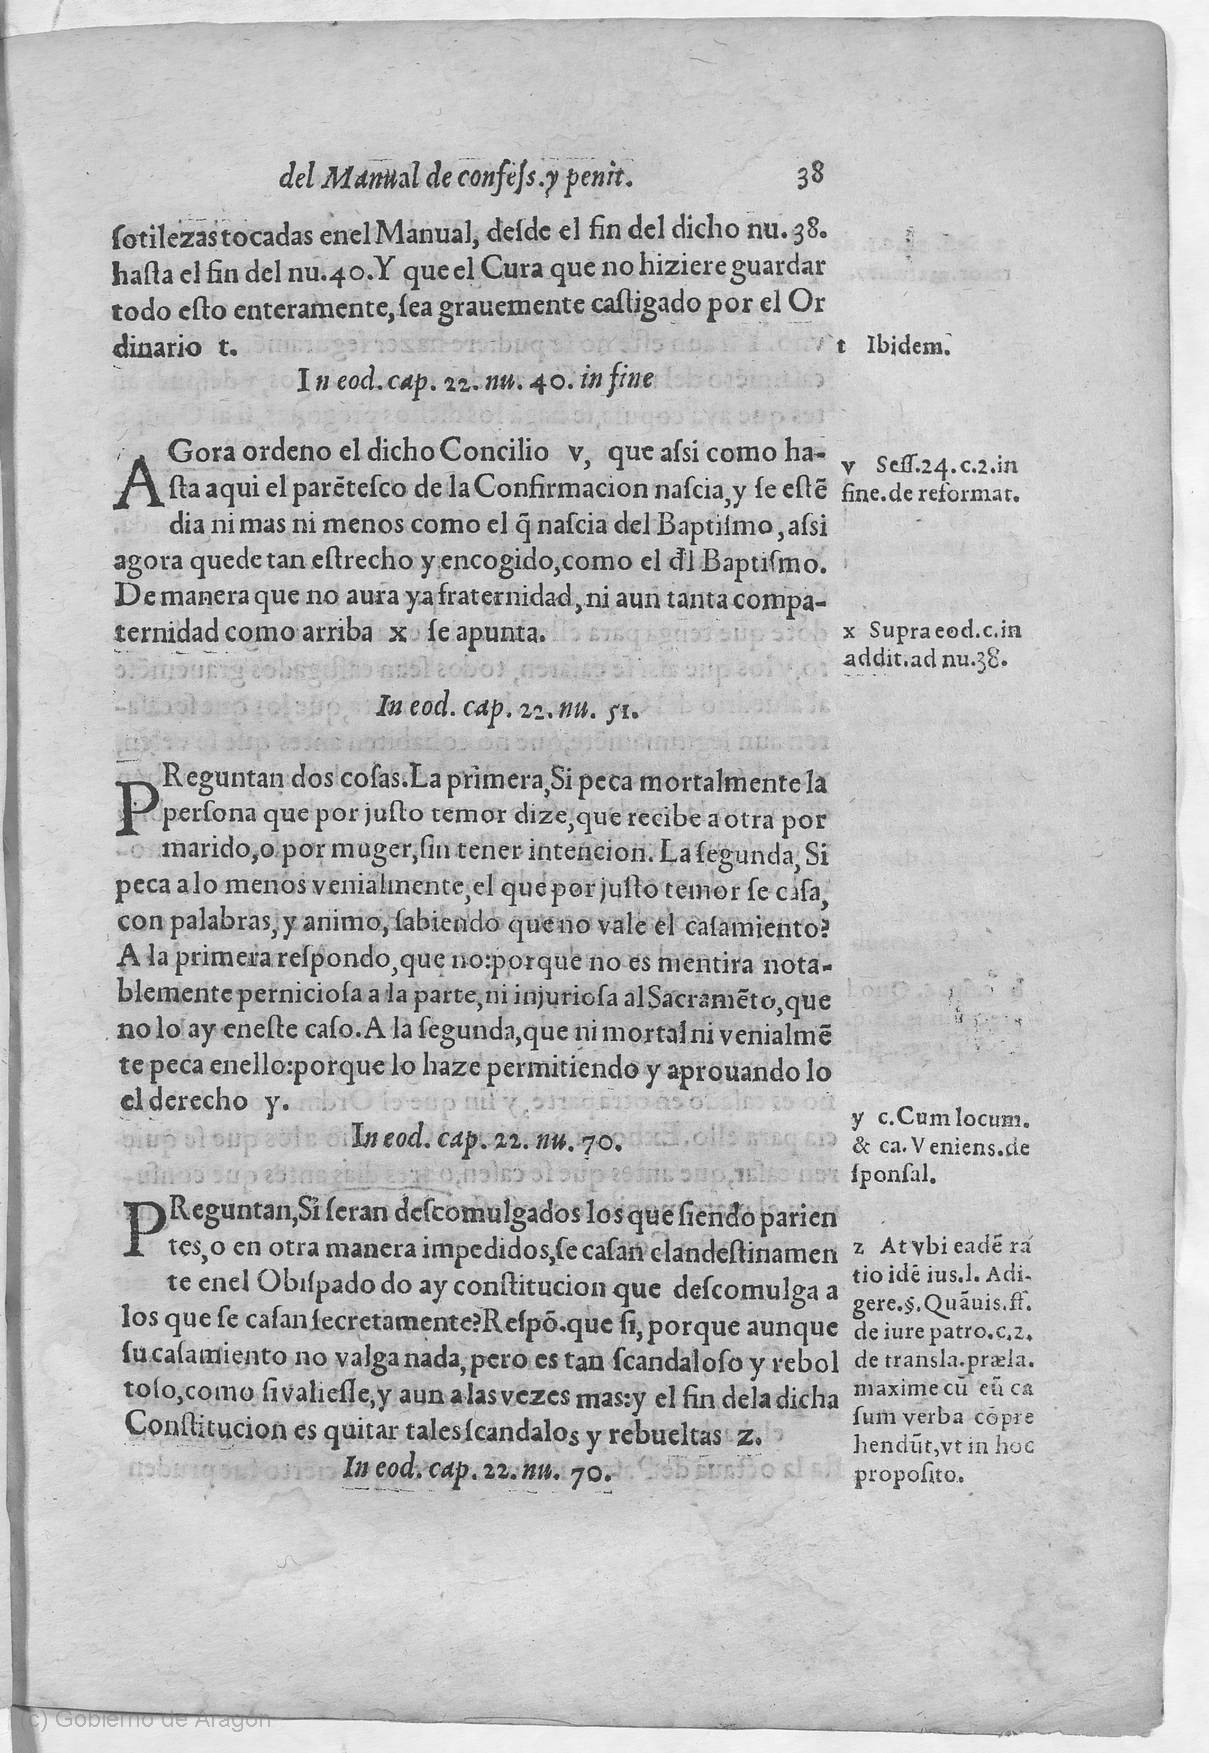 del Manual de confeſs. y penit. 38
ſotilezas tocadas enel Manual, deſde el fin del dicho nu. 38.
haſta el fin del nu. 40. Y que el Cura que no hiziere guardar
todo eſto enteramente, ſea grauemente caſtigado por el Or
dinario t.
t Ibidem.
In eod. cap. 22. nu. 40. in fine
AGora ordeno el dicho Concilio v, que aſsi como ha-
ſta aqui el parẽteſco de la Confirmacion naſcia, y ſe eſtẽ
dia ni mas ni menos como el q̃ naſcia del Baptiſmo, aſsi
agora quede tan eſtrecho y encogido, como el đl Baptiſmo.
De manera que no aura ya fraternidad, ni aun tanta compa-
ternidad como arriba x ſe apunta.
v Seſſ. 24. c. 2. in
fine. de reformat.
x Supra eod. c. in
addit. ad nu. 38.
In eod. cap. 22. nu. 51.
PReguntan dos coſas. La primera, Si peca mortalmente la
perſona que por juſto temor dize, que recibe a otra por
marido, o por muger, ſin tener intencion. La ſegunda, Si
peca a lo menos venialmente, el que por juſto temor ſe caſa,
con palabras, y animo, ſabiendo que no vale el caſamiento?
A la primera reſpondo, que no: porque no es mentira nota-
blemente pernicioſa a la parte, ni injurioſa al Sacramẽto, que
no lo ay eneſte caſo. A la ſegunda, que ni mortal ni venialmẽ
te peca enello: porque lo haze permitiendo y aprouando lo
el derecho y.
y c. Cum locum.
& ca. Veniens. de
ſponſal.
In eod. cap. 22. nu. 70.
PReguntan, Si ſeran deſcomulgados los que ſiendo parien
tes, o en otra manera impedidos, ſe caſan clandeſtinamen
te enel Obiſpado do ay conſtitucion que deſcomulga a
los que ſe caſan ſecretamente? Reſpõ. que ſi, porque aunque
ſu caſamiento no valga nada, pero es tan ſcandaloſo y rebol
toſo, como ſi valieſſe, y aun a las vezes mas: y el fin dela dicha
Conſtitucion es quitar tales ſcandalos y rebueltas z.
z At vbi eadẽ ra
tio idẽ ius. l. Adi-
gere. §. Quãuis. ff.
de iure patro. c. 2.
de transla. præla.
maxime cũ eũ ca
ſum verba cõpre
hendũt, vt in hoc
propoſito.
In eod. cap. 22. nu. 70.
(c) Gobierno de Aragón